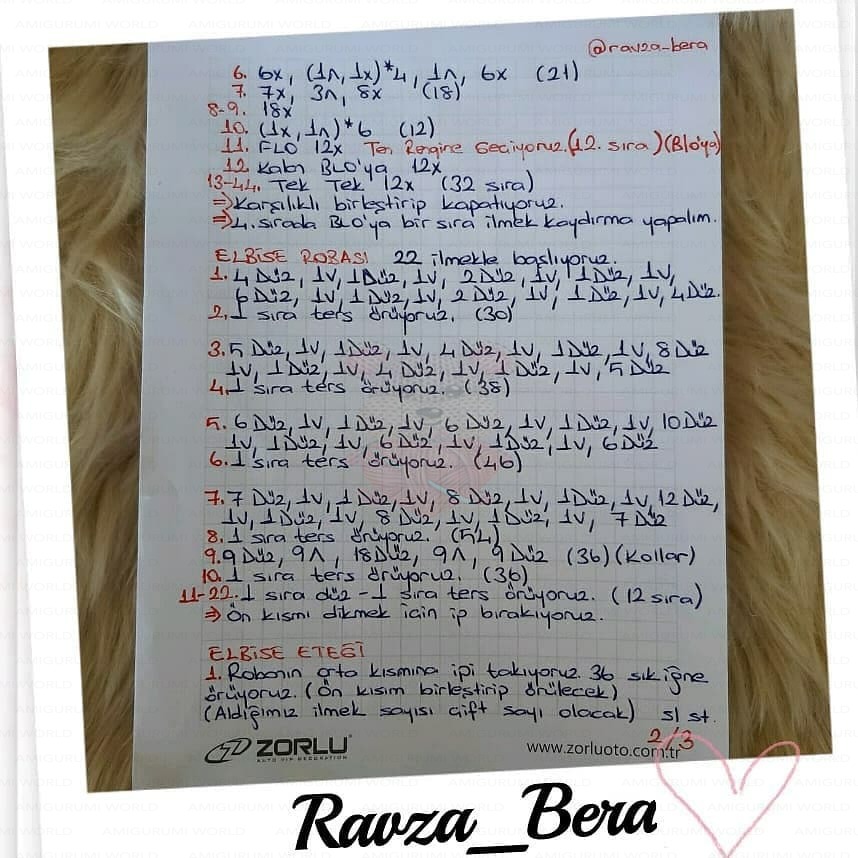 @ravza-bera
6. 6x, (1Λ, 1x)*4, 1Λ, 6x (21)
7. 7x, 3Λ, 8x (18)
8-9. 18x
10. (1x, 1Λ)*6 (12)
11. FLO 12x Ten Rengine Geciyoruz. (12. sıra) (Blo'ya)
12. Kalan BLO'ya 12x
13-44. Tek Tek 12x (32 sıra)
⇒ Karşılıklı birleştirip kapatıyoruz.
⇒ 4. sırada BLO'ya bir sıra ilmek kaydırma yapalım.
ELBİSE ROBASI 22 ilmekle başlıyoruz.
1. 4 Düz, 1v, 1Düz, 1v, 2Düz, 1v, 1Düz, 1v,
6 Düz, 1v, 1 Düz, 1v, 2 Düz, 1v, 1 Düz, 1v, 4Düz.
2. 1 sıra ters örüyoruz. (30)
3. 5 Düz, 1v, 1Düz, 1v, 4 Düz, 1v, 1Düz, 1v, 8 Düz
1v, 1 Düz, 1v, 4 Düz, 1v, 1 Düz, 1v, 5 Düz
4. 1 sıra ters örüyoruz. (38)
5. 6 Düz, 1v, 1 Düz, 1v, 6 Düz, 1v, 1Düz, 1v, 10 Düz
1v, 1Düz, 1v, 6 Düz, 1v, 1Düz, 1v, 6 Düz
6. 1 sıra ters örüyoruz. (46)
7. 7 Düz, 1v, 1 Düz, 1v, 8 Düz, 1v, 1Düz, 1v, 12 Düz,
1v, 1Düz, 1v, 8 Düz, 1v, 1 Düz, 1v, 7 Düz
8. 1 sıra ters örüyoruz. (54)
9. 9 Düz, 9Λ, 18Düz, 9Λ, 9 Düz (36) (Kollar)
10. 1 sıra ters örüyoruz. (36)
11-22. 1 sıra düz - 1 sıra ters örüyoruz. (12 sıra)
⇒ Ön kısmı dikmek için ip bırakıyoruz.
ELBİSE ETEĞİ
1. Robanın orta kısmına ipi takıyoruz. 36 sık iğne
örüyoruz. (Ön kısım birleştirip örülecek)
(Aldığımız ilmek sayısı çift sayı olacak) sl st.
2/3
ZORLU
AUTO VIP DECORATION
www.zorluoto.com.tr
Ravza_Bera